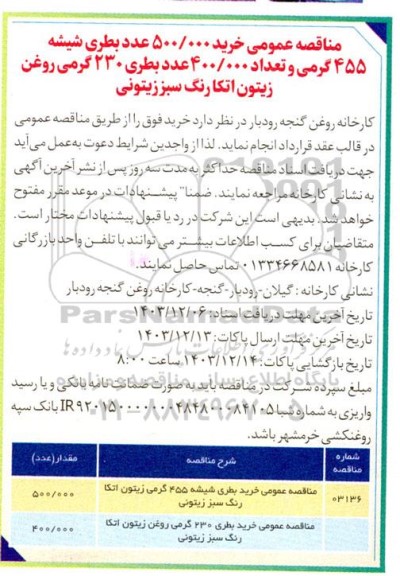 مناقصه عمومی خرید ۵۰۰/۰۰۰ عدد بطری شیشه
۴۵۵ گرمی و تعداد ۴۰۰/۰۰۰ عدد بطری ۲۳۰ گرمی روغن
زیتون اتکا رنگ سبز زیتونی
کارخانه روغن گنجه رودبار در نظر دارد خرید فوق را از طریق مناقصه عمومی
در قالب عقد قرارداد انجام نماید. لذا از واجدین شرایط دعوت به عمل می‌آید
جهت دریافت اسناد مناقصه حداکثر به مدت سه روز پس از نشر آخرین آگهی
به نشانی کارخانه مراجعه نمایند. ضمنا" پیشنهادات در موعد مقرر مفتوح
خواهد شد. بدیهی است این شرکت در رد یا قبول پیشنهادات مختار است.
متقاضیان برای کسب اطلاعات بیشتر می توانند با تلفن واحد بازرگانی
کارخانه ۰۱۳۳۴۶۶۸۵۸۱ تماس حاصل نمایند.
نشانی کارخانه : گیلان-رودبار-گنجه-کارخانه روغن گنجه رودبار
تاریخ آخرین مهلت دریافت اسناد: ۱۴۰۳/۱۲/۰۶
تاریخ آخرین مهلت ارسال پاکات: ۱۴۰۳/۱۲/۱۳
تاریخ بازگشایی پاکات: ۱۴۰۳/۱۲/۱۴ ساعت ۸:۰۰
مبلغ سپرده شرکت در مناقصه باید به صورت ضمانت نامه بانکی و یا رسید
واریزی به شماره شبا بانک سپه
روغنکشی خرمشهر باشد.
شماره مناقصه شرح مناقصه مقدار(عدد)
۰۳۱۳۶ مناقصه عمومی خرید بطری شیشه ۴۵۵ گرمی زیتون اتکا رنگ سبز زیتونی ۵۰۰/۰۰۰
مناقصه عمومی خرید بطری ۲۳۰ گرمی روغن زیتون اتکا رنگ سبز زیتونی ۴۰۰/۰۰۰
۰۲۱-۸۸۳۴۹۶۷۰-۵